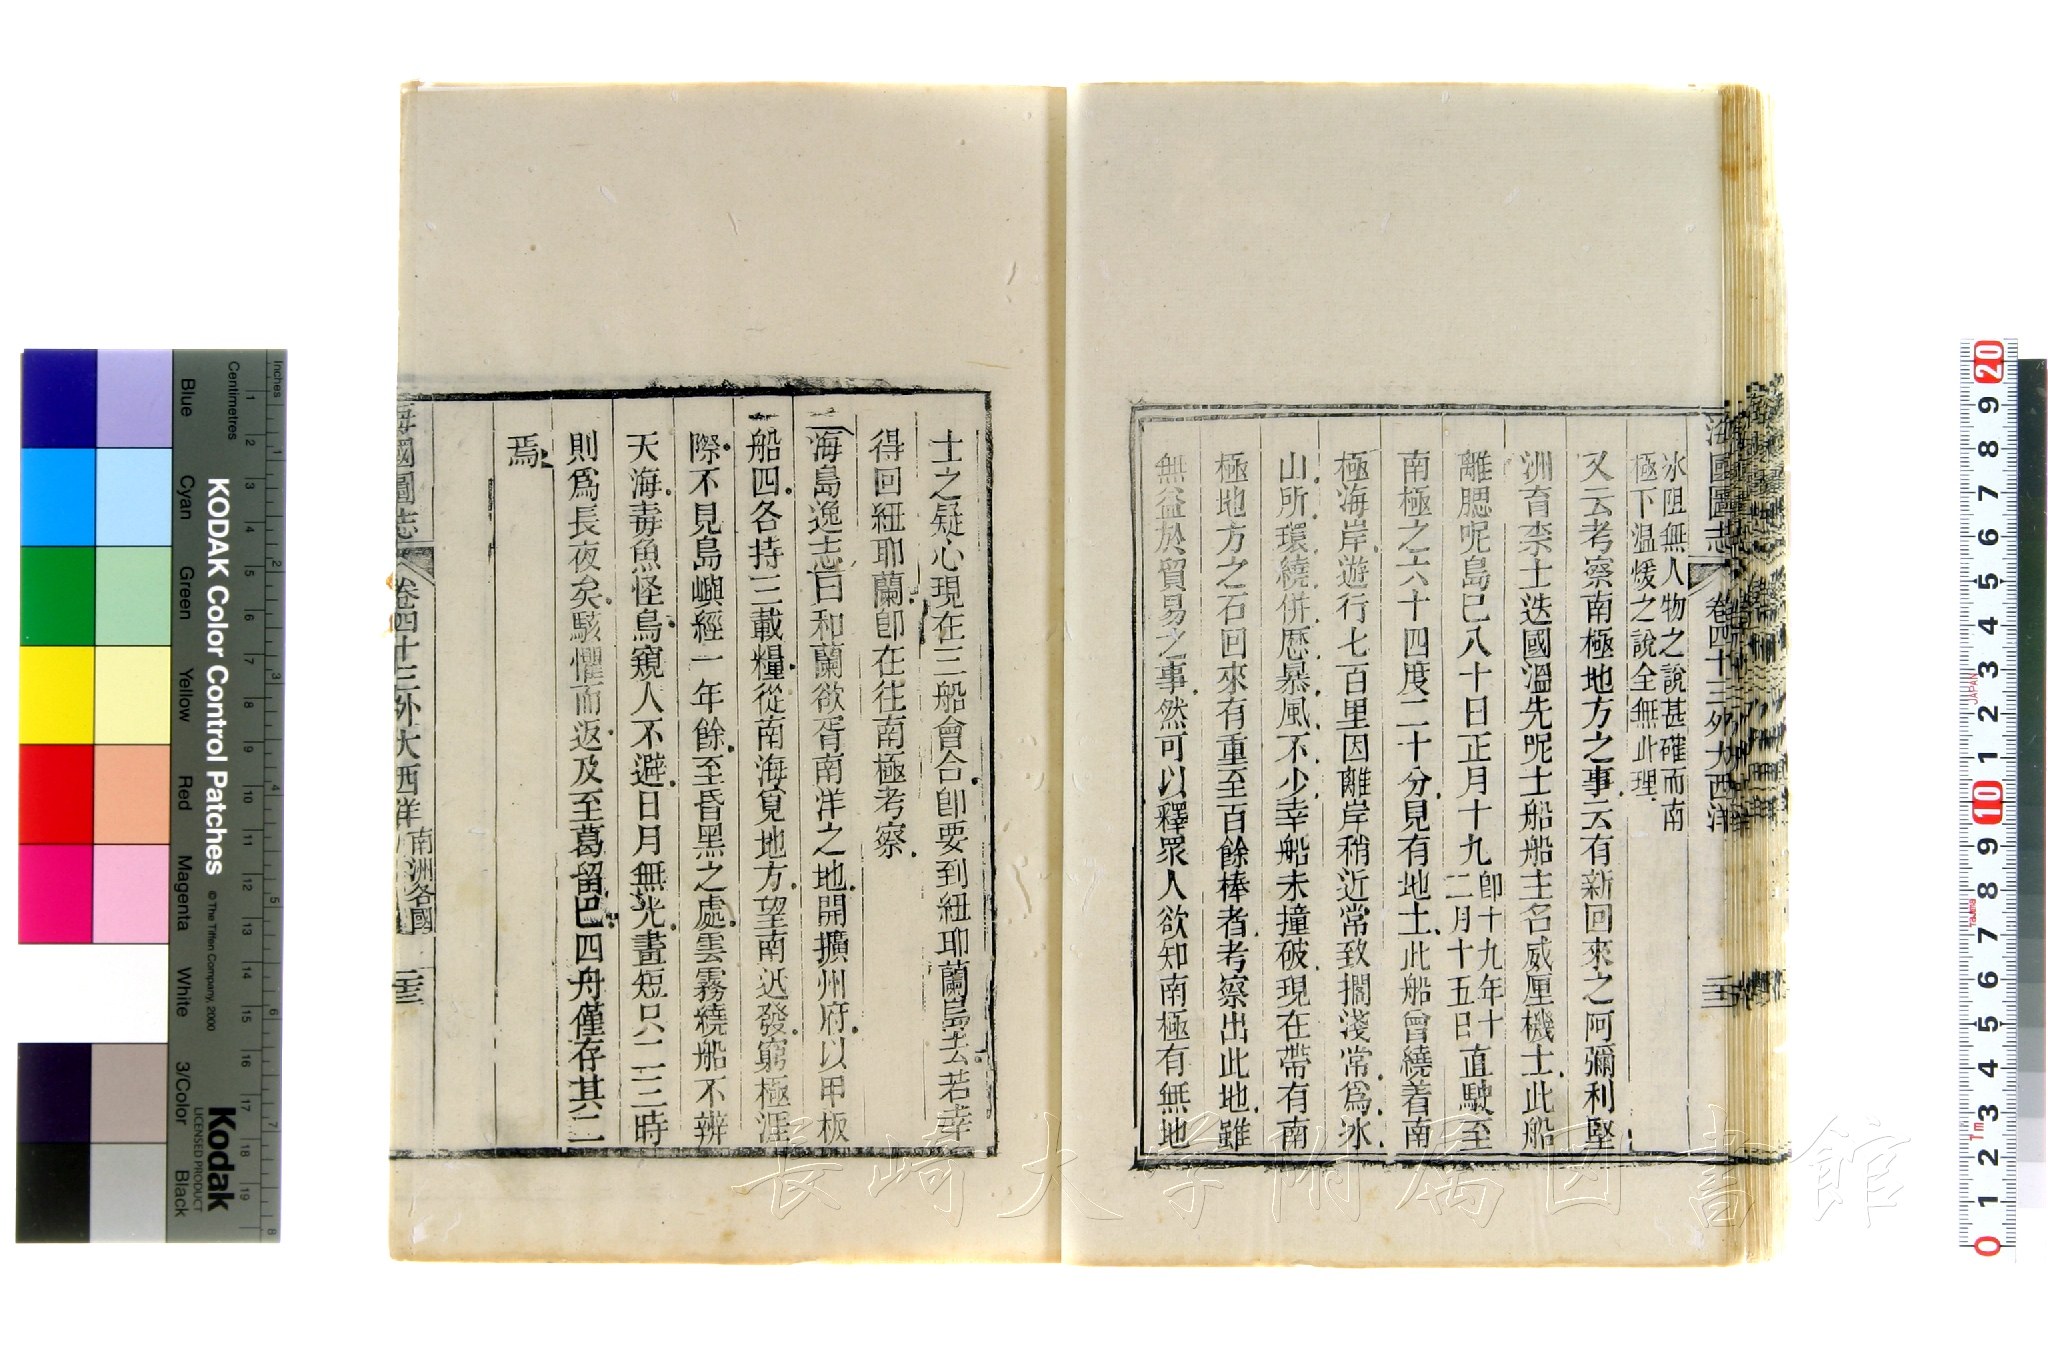 海國圖志 卷四十三外大西洋
冰阻無人物之說甚確而南
極下温煖之說全無此理
又云考察南極地方之事云有新回來之阿彌利堅
洲育柰士迭國溫先呢士船船主名威厘機士此船
離腮呢島已八十日正月十九卽十九年十二月十五日直駛至
南極之六十四度二十分見有地土此船曾繞着南
極海岸遊行七百里因離岸稍近常致擱淺常爲冰
山所環繞併歷暴風不少幸船未撞破現在帶有南
極地方之石回來有重至百餘棒者考察出此地雖
無益於貿易之事然可以釋眾人欲知南極有無地
士之疑心現在三船會合卽要到紐耶蘭島去若幸
得回紐耶蘭卽在往南極考察
海島逸志曰和蘭欲胥南洋之地開擴州府以甲板
船四各持三載糧從南海覓地方望南迅發窮極涯
際不見島嶼經一年餘至昏黑之處雲霧繞船不辨
天海毒魚怪鳥窺人不避日月無光晝短只二三時
則爲長夜矣駭懼而返及至葛留巴四舟僅存其二
焉
海國圖志 卷四十三外大西洋 南洲各國 二十三
KODAK Color Control Patches
© The Tiffen Company, 2000
Kodak
LICENSED PRODUCT
Inches
Centimetres
Blue Cyan Green Yellow Red Magenta White 3/Color Black
1 2 3 4 5 6 7 8 9 10 11 12 13 14 15 16 17 18 19
1 2 3 4 5 6 7 8
20 9 8 7 6 5 4 3 2 1 10 9 8 7 6 5 4 3 2 1 0
JAPAN
長崎大学附属図書館